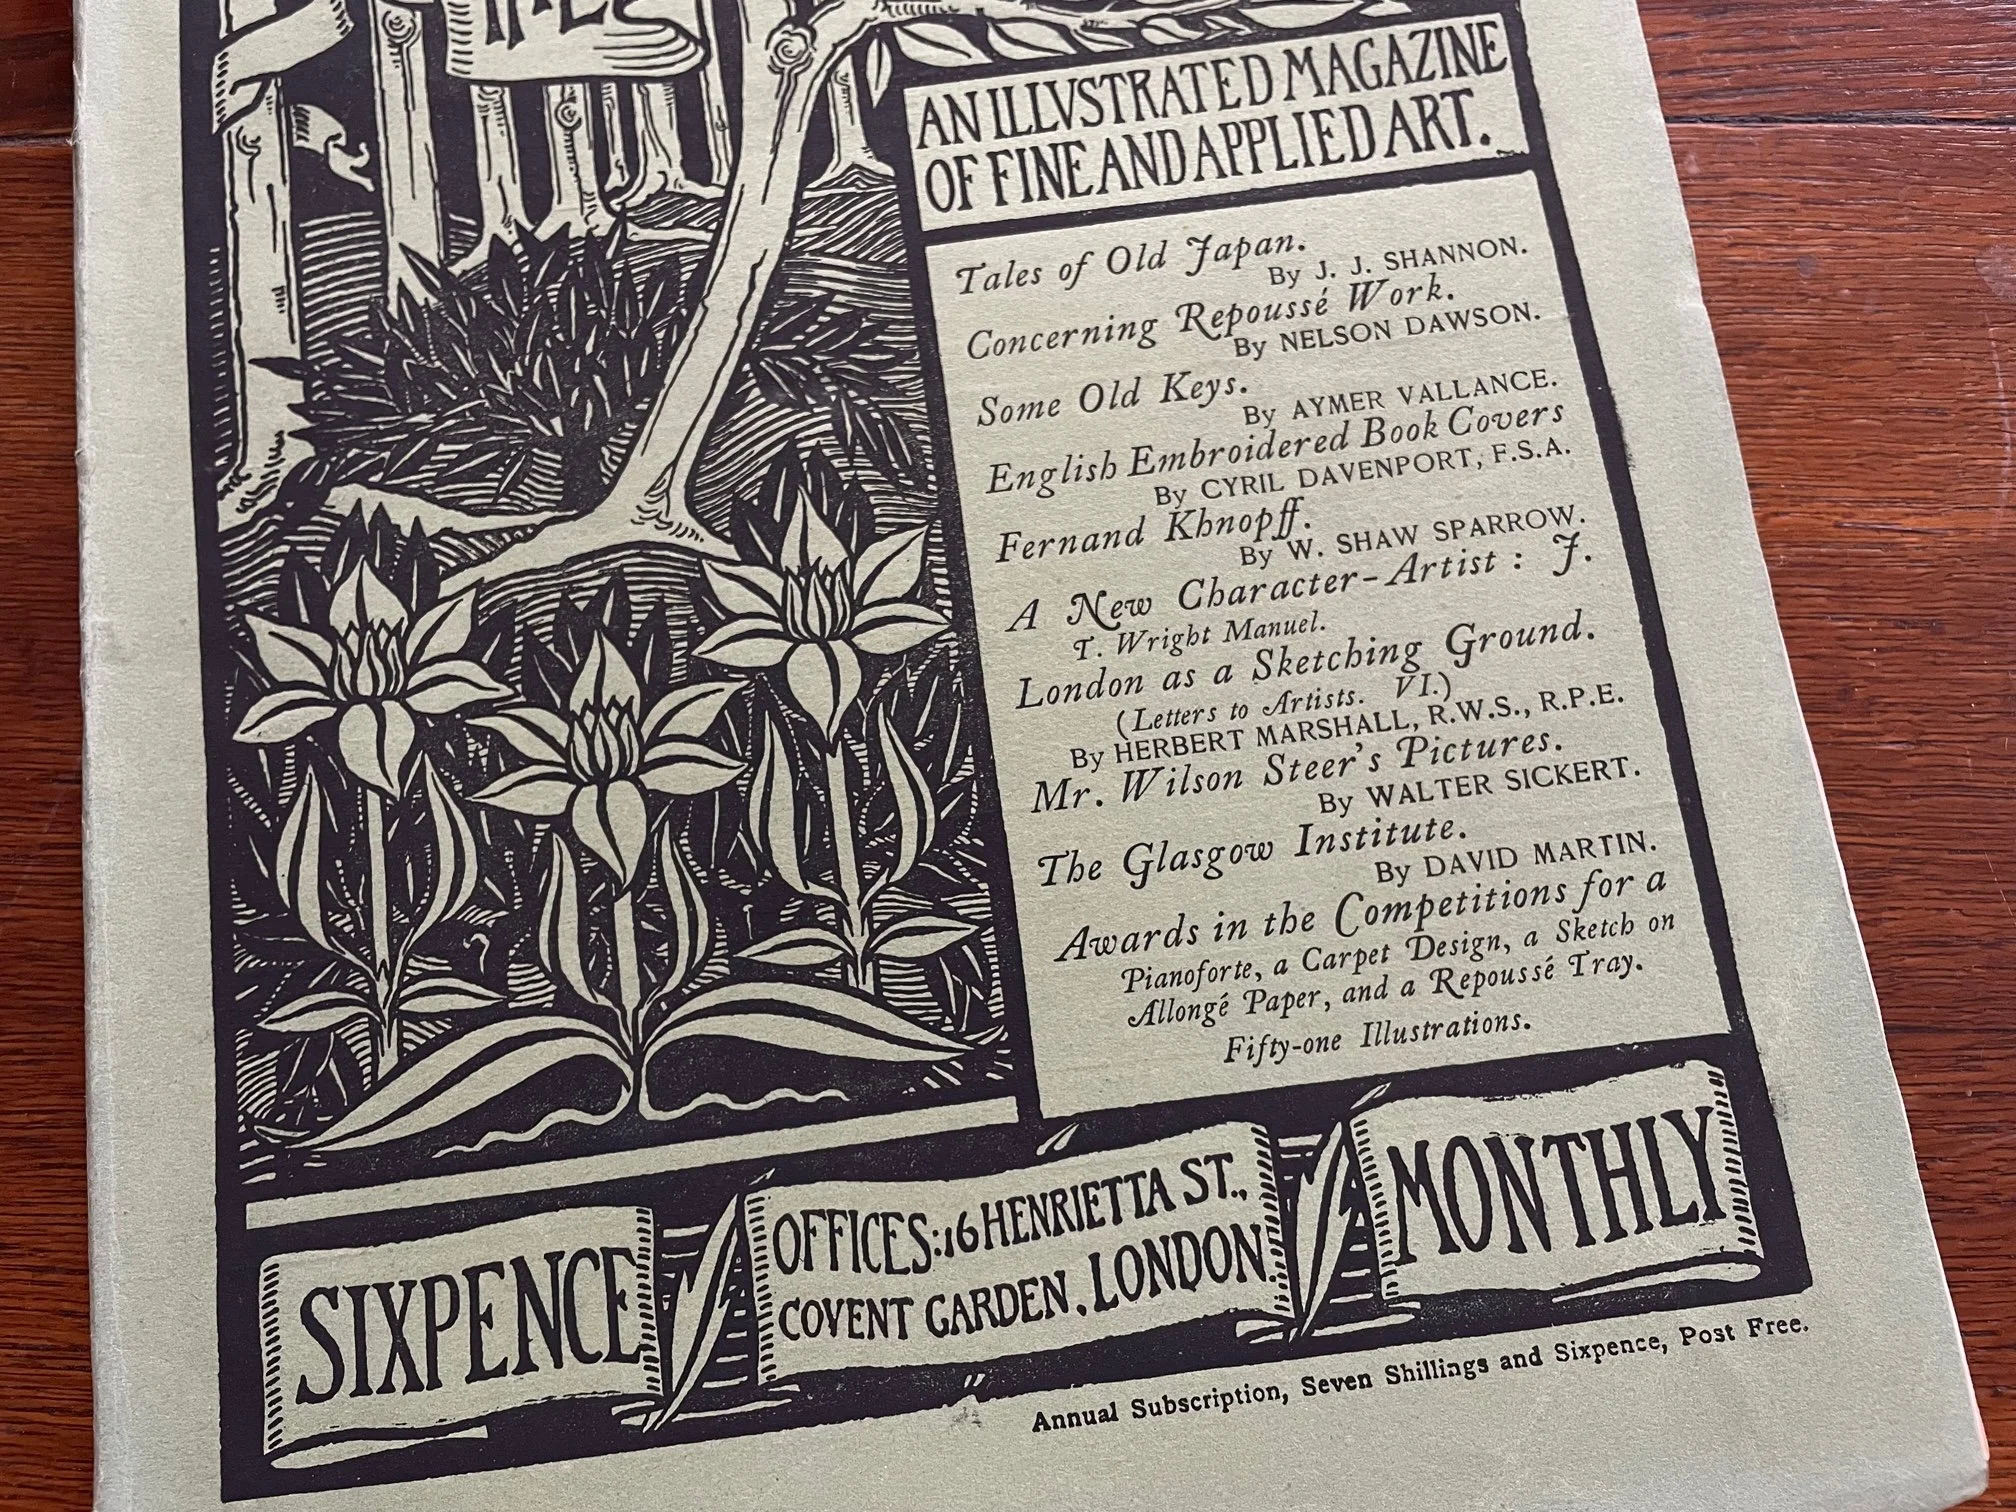 AN ILLVSTRATED MAGAZINE
OF FINE AND APPLIED ART.
Tales of Old Japan.
By J. J. SHANNON.
Concerning Repoussé Work.
By NELSON DAWSON.
Some Old Keys.
By AYMER VALLANCE.
English Embroidered Book Covers
By CYRIL DAVENPORT, F.S.A.
Fernand Khnopff.
By W. SHAW SPARROW.
A New Character-Artist: J.
T. Wright Manuel.
London as a Sketching Ground.
(Letters to Artists. VI.)
By HERBERT MARSHALL, R.W.S., R.P.E.
Mr. Wilson Steer's Pictures.
By WALTER SICKERT.
The Glasgow Institute.
By DAVID MARTIN.
Awards in the Competitions for a
Pianoforte, a Carpet Design, a Sketch on
Allongé Paper, and a Repoussé Tray.
Fifty-one Illustrations.
SIXPENCE
OFFICES: 16 HENRIETTA ST.,
COVENT GARDEN. LONDON.
MONTHLY
Annual Subscription, Seven Shillings and Sixpence, Post Free.